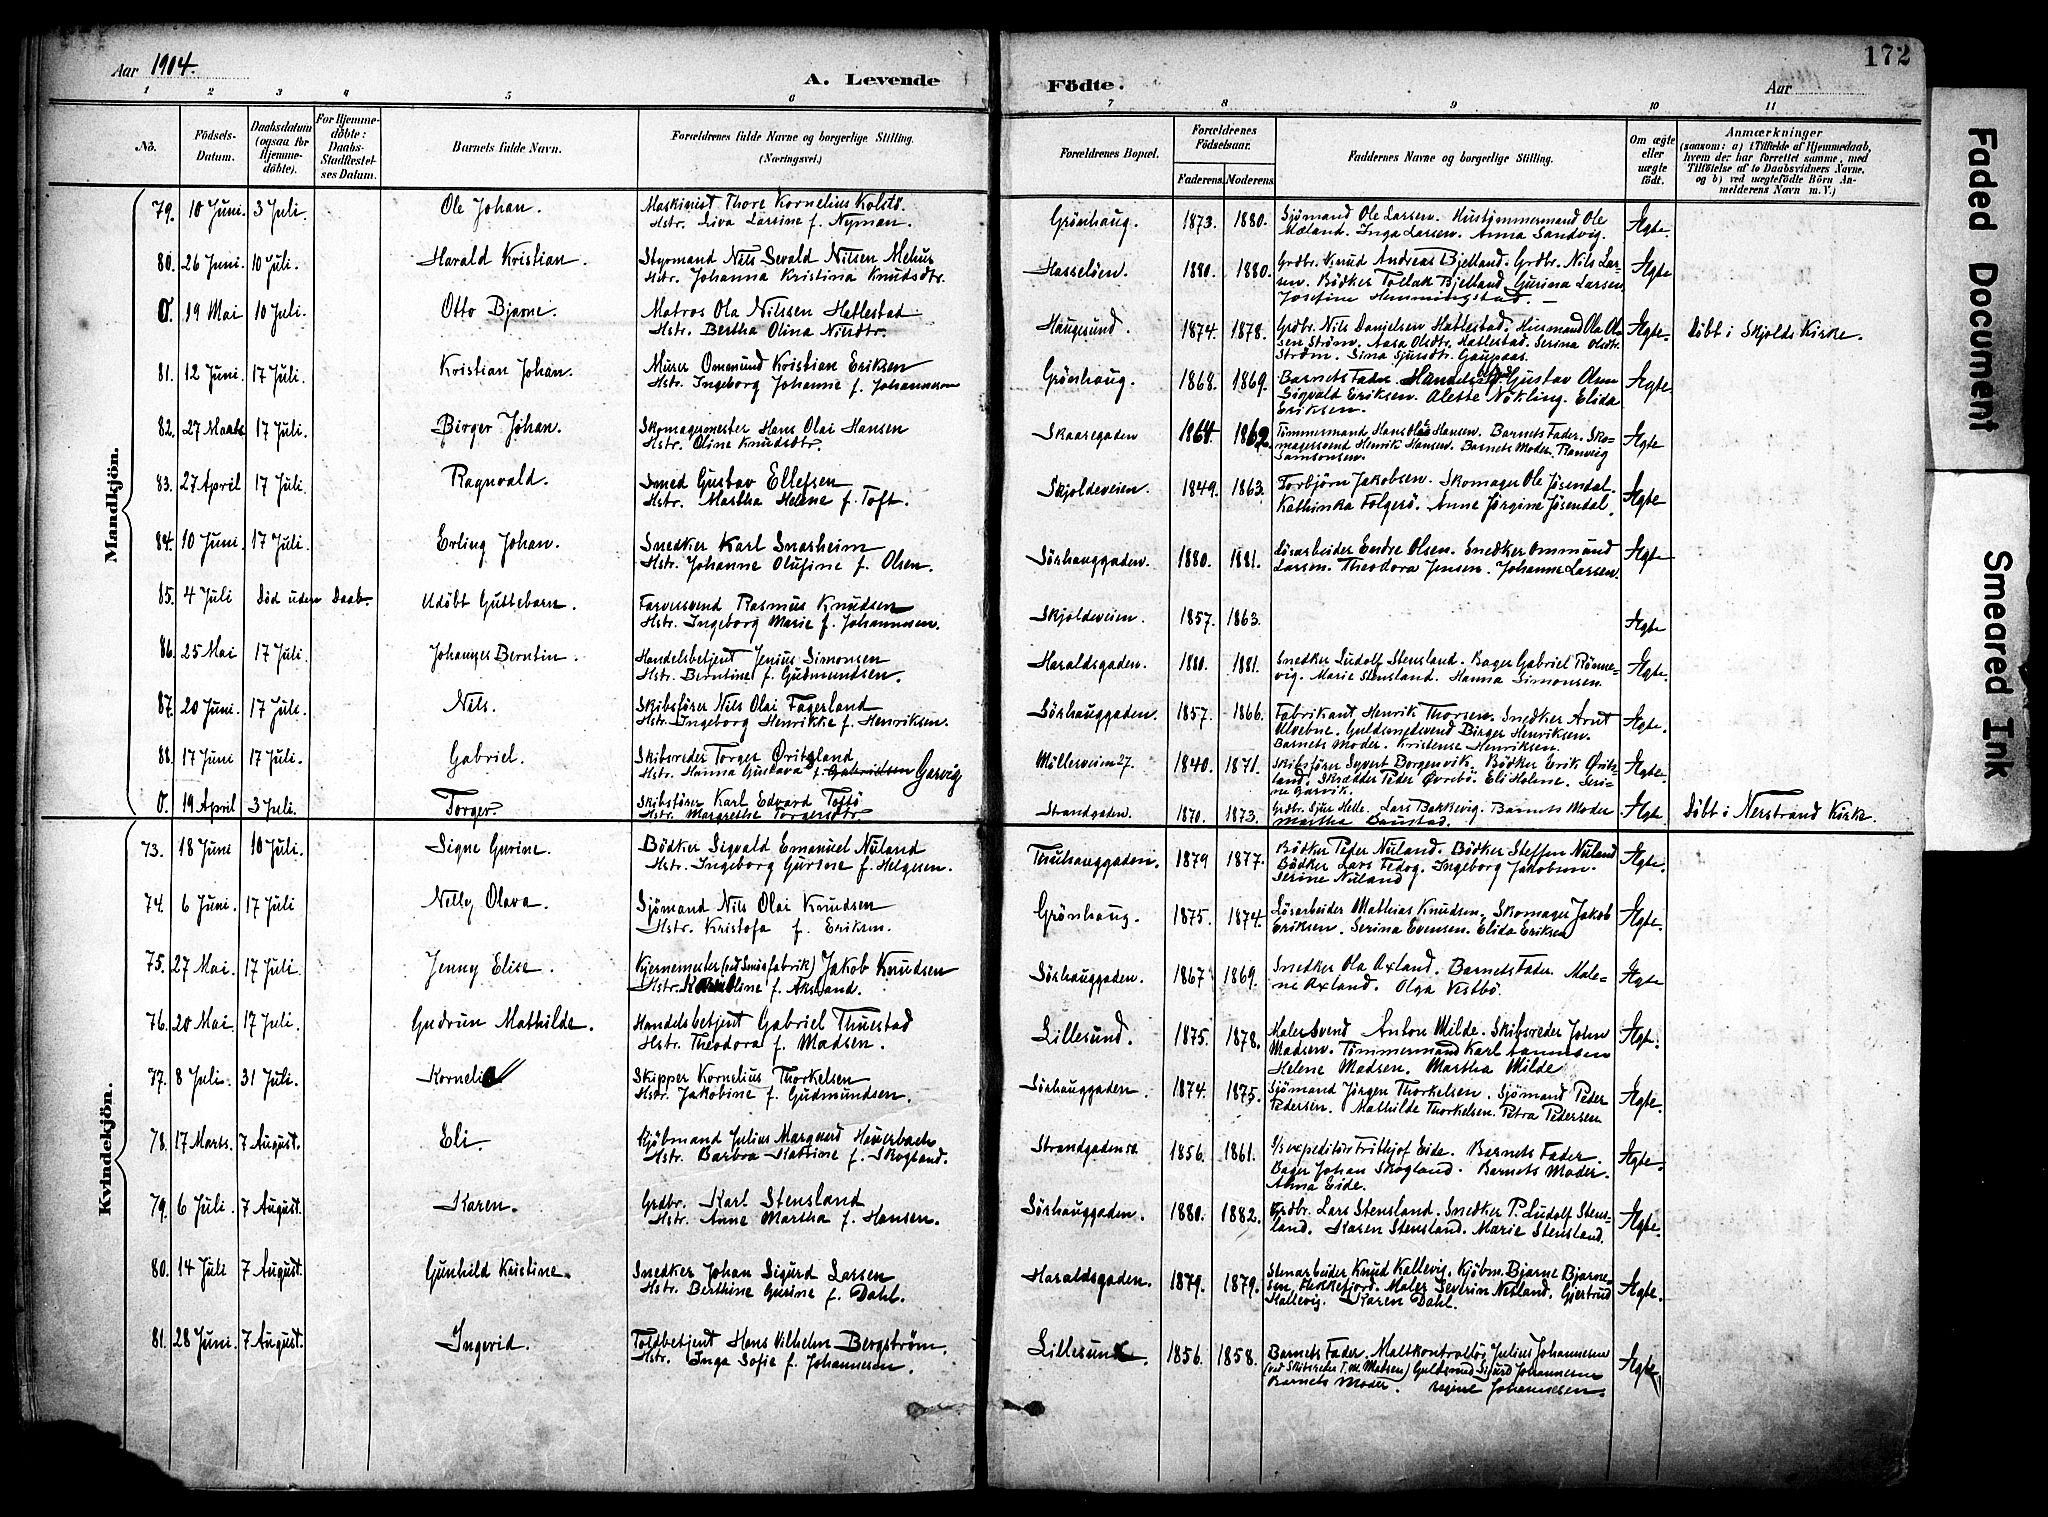 Aar 1904.
A. Levende Födte.
Aar
172
1 2 3 4 5 6 7 8 9 10 11
No.
Födsels-Datum.
Daabsdatum (ogsaa for Hjemmedöbte).
For Hjemmedöbte: Daabs-Stadfestelses Datum.
Barnets fulde Navn.
Forældrenes fulde Navne og borgerlige Stilling. (Næringsvei.)
Forældrenes Bopæl.
Forældrenes Födselsaar.
Faderens. Moderens.
Faddernes Navne og borgerlige Stilling.
Om ægte eller uægte födt.
Anmærkninger (saasom: a) i Tilfælde af Hjemmedaab, hvem der har forrettet samme, med Tilföielse af to Daabsvidners Navne, og b) ved uægtefödte Börn Anmelderens Navn m. V.)
Mandkjön.
79. 10 Juni. 3 Juli. Ole Johan. Maskinist Thore Kornelius Kolstö. Hstr. Liva Larsine f. Nyman. Grönhaug. 1873. 1880. Sjömand Ole Larsen. Hustimmermand Ole Mæland. Inga Larsen. Anna Sandvig. Ægte.
80. 26 Juni. 10 Juli. Harald Kristian. Styrmand Nils Sevald Nilsen Mehus Hstr. Johanna Kristina Knudsdtr. Hasselöen. 1880. 1880. Grdbr. Knud Andreas Bjelland. Grdbr. Nils Larsen. Bödker Tollak Bjelland. Gurina Larsen. Josefine Hemmingstad. Ægte
0. 19 Mai 10 Juli. Otto Bjarne. Matros Ola Nilssen Hatlestad Hstr. Bertha Olina Nilsdtr. Haugesund. 1874. 1878. Grdbr. Nils Danielsen Hatlestad. Husmand Ola Olsen Ström. Aasa Olsdtr. Hatlestad. Serina Olsdtr. Ström. Sina Sjursdtr. Gaupaas. Ægte. Döbt i Skjolds Kirke.
81. 12 Juni. 17 Juli. Kristian Johan. Murer Omemund Kristian Eriksen Hstr. Ingeborg Johanne f. Johannesen Grönhaug. 1868. 1869. Barnets Fader. Handelsbetj. Gustav Olsen Sigvald Eriksen. Alette Nökling. Elida Eriksen. Ægte.
82. 27 Marts 17 Juli. Birger Johan. Skomagermester Hans Olai Hansen Hstr. Oline Knudsdtr. Skaaregaden 1864. 1862. Tömmermand Hans Olai Hansen. Barnets Fader. Skomagersvend Henrik Hansen. Barnets Moder. Ranveig Samsonsen. Ægte
83. 27 April 17 Juli. Ragnvald. Smed Gustav Ellefsen Hstr. Martha Helene f. Toft. Skjoldeveien. 1849. 1863. Torbjörn Jakobsen. Skomager Ole Jösendal. Kathinka Folgerö. Anne Jörgine Jösendal. Ægte
84. 10 Juni. 17 Juli. Erling Johan. Snedker Karl Snarheim Hstr. Johanne Olufine f. Olsen. Sörhauggaden. 1880. 1881. Lösarbeider Endre Olsen. Snedker Ommund Larsen. Theodora Jensen. Johanne Larsen. Ægte
85. 4 Juli Död uden Daab. Udöbt Guttebarn. Farversvend Rasmus Knudsen Hstr. Ingeborg Marie f. Johannesen. Skjoldeveien. 1857. 1863. Ægte
86. 25 Mai 17 Juli. Johannes Berntin. Handelsbetjent Jenius Simonsen Hstr. Berntine f. Gudmundsen. Haraldsgaden. 1880. 1881. Snedker Ludolf Stensland. Bager Gabriel Rönnevig. Marie Stensland. Hanna Simonsen. Ægte.
87. 20 Juni. 17 Juli. Nils. Skibsförer Nils Olai Fagerland Hstr. Ingeborg Henrikke f. Henriksen. Sörhauggaden. 1857. 1866. Fabrikant Henrik Thorsen. Snedker Arnt Alvebne. Guldsmedsvend Birger Henriksen. Barnets Moder. Kristense Henriksen. Ægte.
88. 17 Juni 17 Juli. Gabriel. Skibsreder Torger Østland Hstr. Hanna Gustava f. Gabrielsen Garvig Möllerveien 27. 1840. 1871. Skibsförer Syvert Borgenvik. Bödker Erik. Skrædder Peder Øvrebö. Eli Helene. Serine Garvik. Ægte.
0. 19 April 3 Juli. Torger. Skibsförer Karl Edvard Toftö Hstr. Margrethe Torgersdtr. Strandgaden. 1870. 1873. Grdbr. Sjur Helle. Lars Bakkevig. Barnets Moder Martha Ægte. Döbt i Nerstrand Kirke.
Kvindekjön.
73. 18 Juni 10 Juli. Signe Gurine. Bödker Sigvald Emanuel Nuland Hstr. Ingeborg Gurine f. Helgesen. Thuhauggaden. 1879 1877. Bödker Peder Nuland. Bödker Steffen Nuland Bödker Lars Fedog. Ingeborg Jakobsen. Serine Nuland Ægte.
74. 6 Juni. 17 Juli Nelly Olava. Sjömand Nils Olai Knudsen Hstr. Kristofa f. Eriksen. Grönhaug. 1875. 1874. Lösarbeider Mathias Knudsen. Skomager Jakob Eriksen. Serina Evensen. Elida Eriksen Ægte.
75. 27 Mai. 17 Juli. Jenny Elise. Kjernemester (ved Smörfabrik) Jakob Knudsen Hstr. Karoline f. Aksland. Sörhauggaden. 1867 1869. Snedker Ola Axland. Barnets Fader. Malene Axland. Olga Vestbö. Ægte
76. 20 Mai 17 Juli. Gudrun Mathilde. Handelsbetjent Gabriel Thuestad Hstr. Theodora f. Madsen. Lillesund. 1875. 1878. Malersvend Anton Milde. Skibsreder John Madsen. Tömmermand Karl Helene Madsen. Martha Milde Ægte.
77. 8 Juli. 31 Juli. Kornelia Skipper Kornelius Thorkelsen Hstr. Jakobine f. Gudmundsen. Sörhauggaden. 1874. 1875. Sjömand Jörgen Thorkelsen. Sjömand Peder Pedersen. Mathilde Thorkelsen. Petra Pedersen Ægte.
78. 17 Marts. 7 August. Eli. Kjöbmand Julius Marquard Heuerbach Hstr. Barbra Katrine f. Skogland. Strandgaden 1856. 1861. S/sexpeditör Frithjof Eide. Barnets Fader. Bager Johan Skogland. Barnets Moder. Anna Eide. Ægte.
79. 6 Juli. 7 August. Karen. Grdbr. Karl Stensland Hstr. Anne Martha f. Hansen. Sörhauggaden. 1880. 1882. Grdbr. Lars Stensland. Snedker P. Ludolf Stensland. Karen Stensland. Marie Stensland. Ægte.
80. 14 Juli 7 August. Gunhild Kristine. Snedker Johan Sigurd Larsen Hstr. Berthine Gurine f. Dahl. Haraldsgaden. 1879. 1879. Stenarbeider Knud Kallevig. Kjöbm. Bjarne Bjarnesen, Flekkefjord. Maler Severin Netland. Gjertrud Kallevig. Karen Dahl. Ægte.
81. 28 Juni. 7 August. Ingerid. Toldbetjent Hans Vilhelm Bergström. Hstr. Inga Sofie f. Johannesen. Lillesund. 1856. 1858. Barnets Fader. Maltkontrollör Julius Johannesen Guldsmed Sigurd Johannesen Barnets Moder. Johannesen. Ægte
Faded Document
Smeared Ink